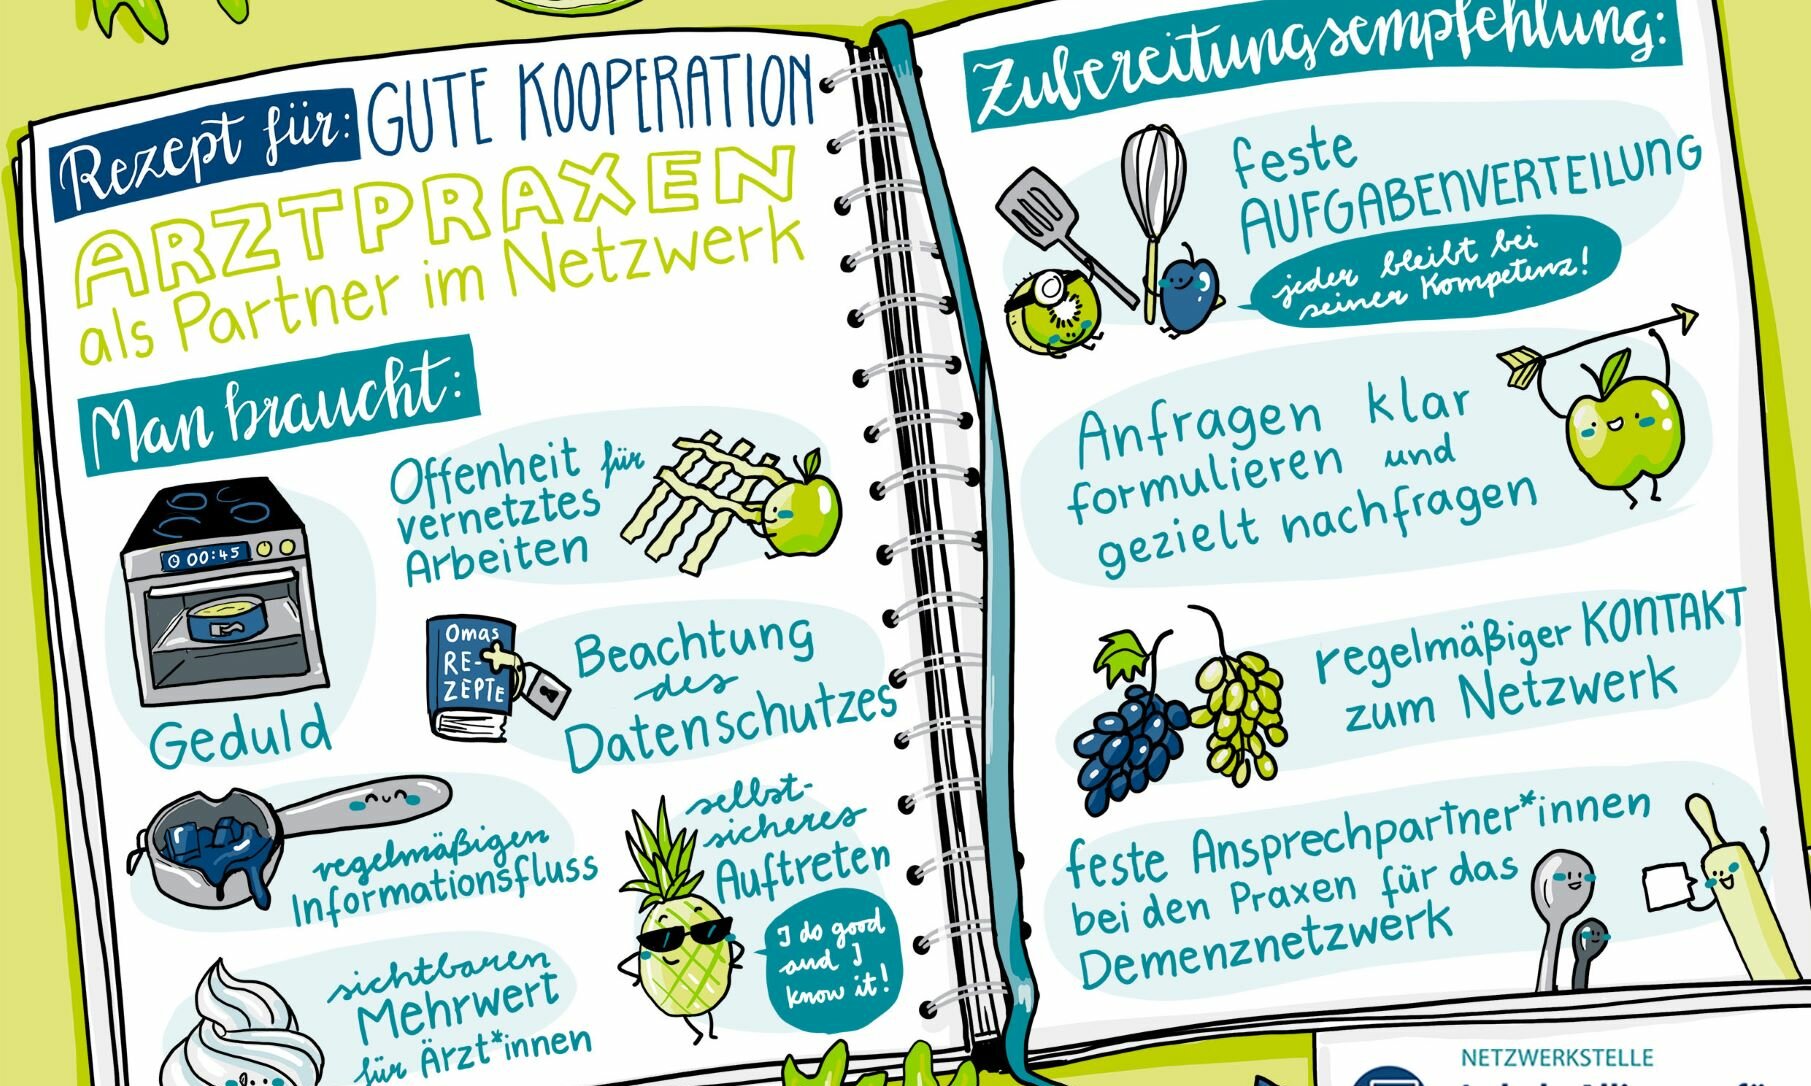 Rezept für: GUTE KOOPERATION
ARZTPRAXEN
als Partner im Netzwerk
Man braucht:
00:45
Geduld
Offenheit für
vernetztes
Arbeiten
Omas
RE-
ZEPTE
Beachtung
des
Datenschutzes
regelmäßigen
Informationsfluss
selbst-
sicheres
Auftreten
I do good
and I
know it!
sichtbaren
Mehrwert
für Ärzt*innen
Zubereitungsempfehlung:
feste
AUFGABENVERTEILUNG
jeder bleibt bei
seiner Kompetenz!
Anfragen klar
formulieren und
gezielt nachfragen
regelmäßiger KONTAKT
zum Netzwerk
feste Ansprechpartner*innen
bei den Praxen für das
Demenznetzwerk
NETZWERKSTELLE